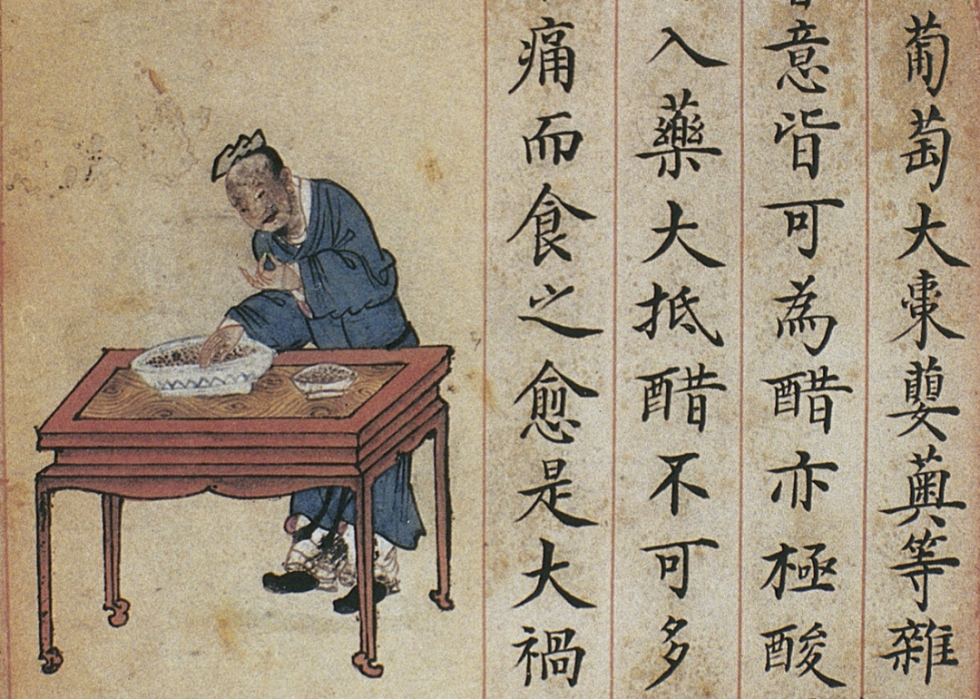 葡萄大棗蘡薁等雜
意皆可為醋亦極酸
入藥大抵醋不可多
痛而食之愈是大禍